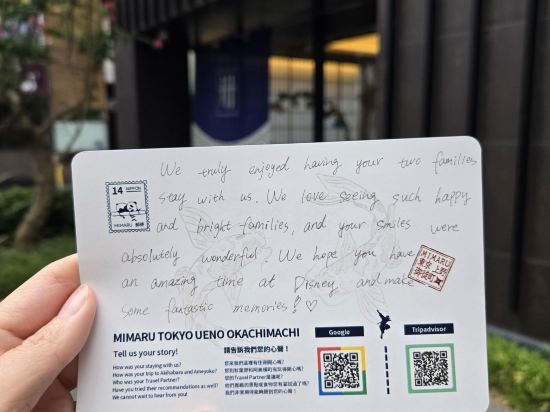 We truly enjoyed having your two families
stay with us. We love seeing such happy
and bright families, and your smiles were
absolutely wonderful! We hope you have
an amazing time at Disney and make
some fantastic memories! ♡
14 NIPPON
MIMARU 郵便
MIMARU
東京 上野
御徒町
MIMARU TOKYO UENO OKACHIMACHI
Tell us your story!
How was your staying with us?
How was your trip to Akihabara and Ameyoko?
Who was your Travel Partner?
Have you tried their recommendations as well?
We cannot wait to hear from you!
請告訴我們您的心聲！
Google
Tripadvisor